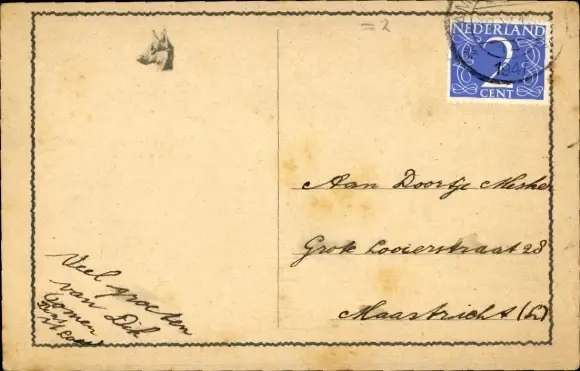 = 2
NEDERLAND
2
CENT
Aan Doortje Mesker
Grote Looierstraat 28
Maastricht (L)
Veel groeten
van Dek